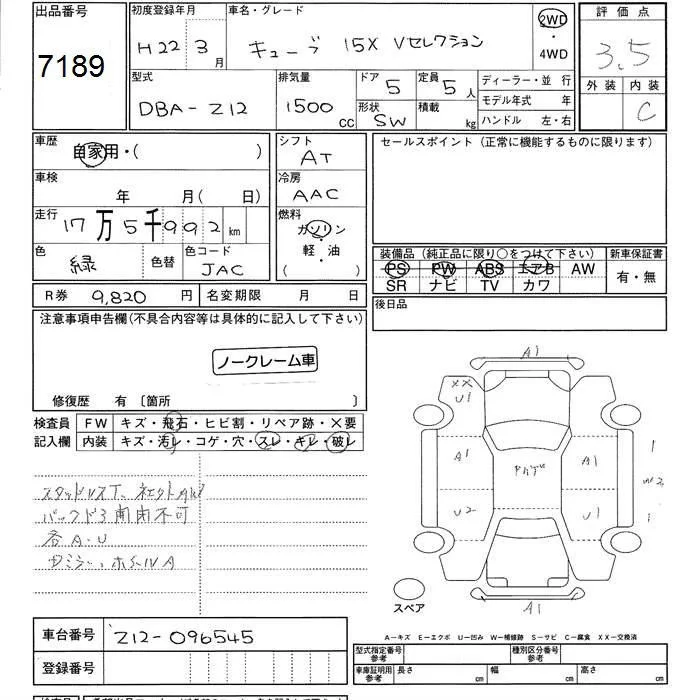 出品番号
7189
初度登録年月
H22 3月
車名・グレード
キューブ 15X Vセレクション
2WD
・
4WD
評価点
3.5
外装 内装
C
型式
DBA-Z12
排気量
1500cc
ドア
5
形状
SW
定員
5人
積載
kg
ディーラー・並 行
モデル年式 年
ハンドル 左・右
車歴
自家用・( )
シフト
AT
セールスポイント (正常に機能するものに限ります)
車検
年 月(日)
冷房
AAC
走行
17万5千992km
燃料
ガソリン
軽・油
( ・ )
色
緑
色替
色コード
JAC
装備品 (純正品に限り○をつけて下さい)
PS PW ABS エアB AW
SR ナビ TV カワ
新車保証書
有・無
R券 9,820円
名変期限 月 日
後日品
注意事項申告欄(不具合内容等は具体的に記入して下さい)
ノークレーム車
修復歴 有 〔箇所 〕
検査員
記入欄
FW キズ・飛石・ヒビ割・リペア跡・×要
内装 キズ・汚レ・コゲ・穴・スレ・キレ・破レ
バックドア開閉不可
各A.U
A1
XX
U1
A1
A1
U2
U1
W2
スペア
A1
A－キズ E－エクボ U－凹み W－補修跡 S－サビ C－腐食 XX－交換済
車台番号
Z12-096545
登録番号
型式指定番号
参考
種別区分番号
参考
車庫証明用
参考
長さ cm
幅 cm
高さ cm